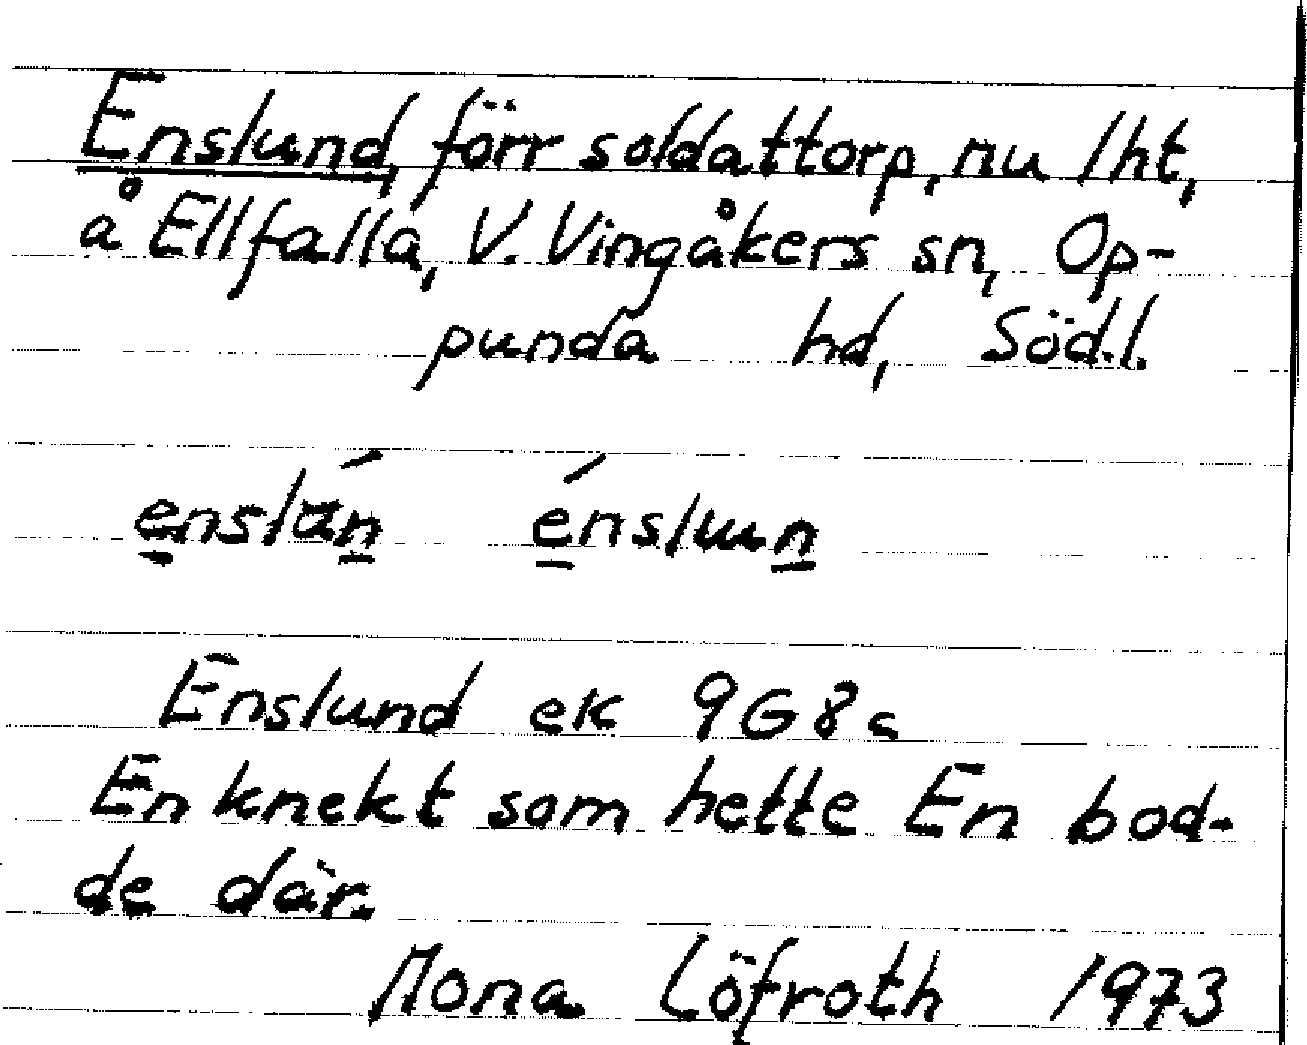 Enslund, förr soldattorp, nu lht,
å Ellfalla, V. Vingåkers sn, Op-
punda hd, Södl.
énslun
Enslund ek 9G8c
En knekt som hette En bod-
de där.
Mona Löfroth 1973